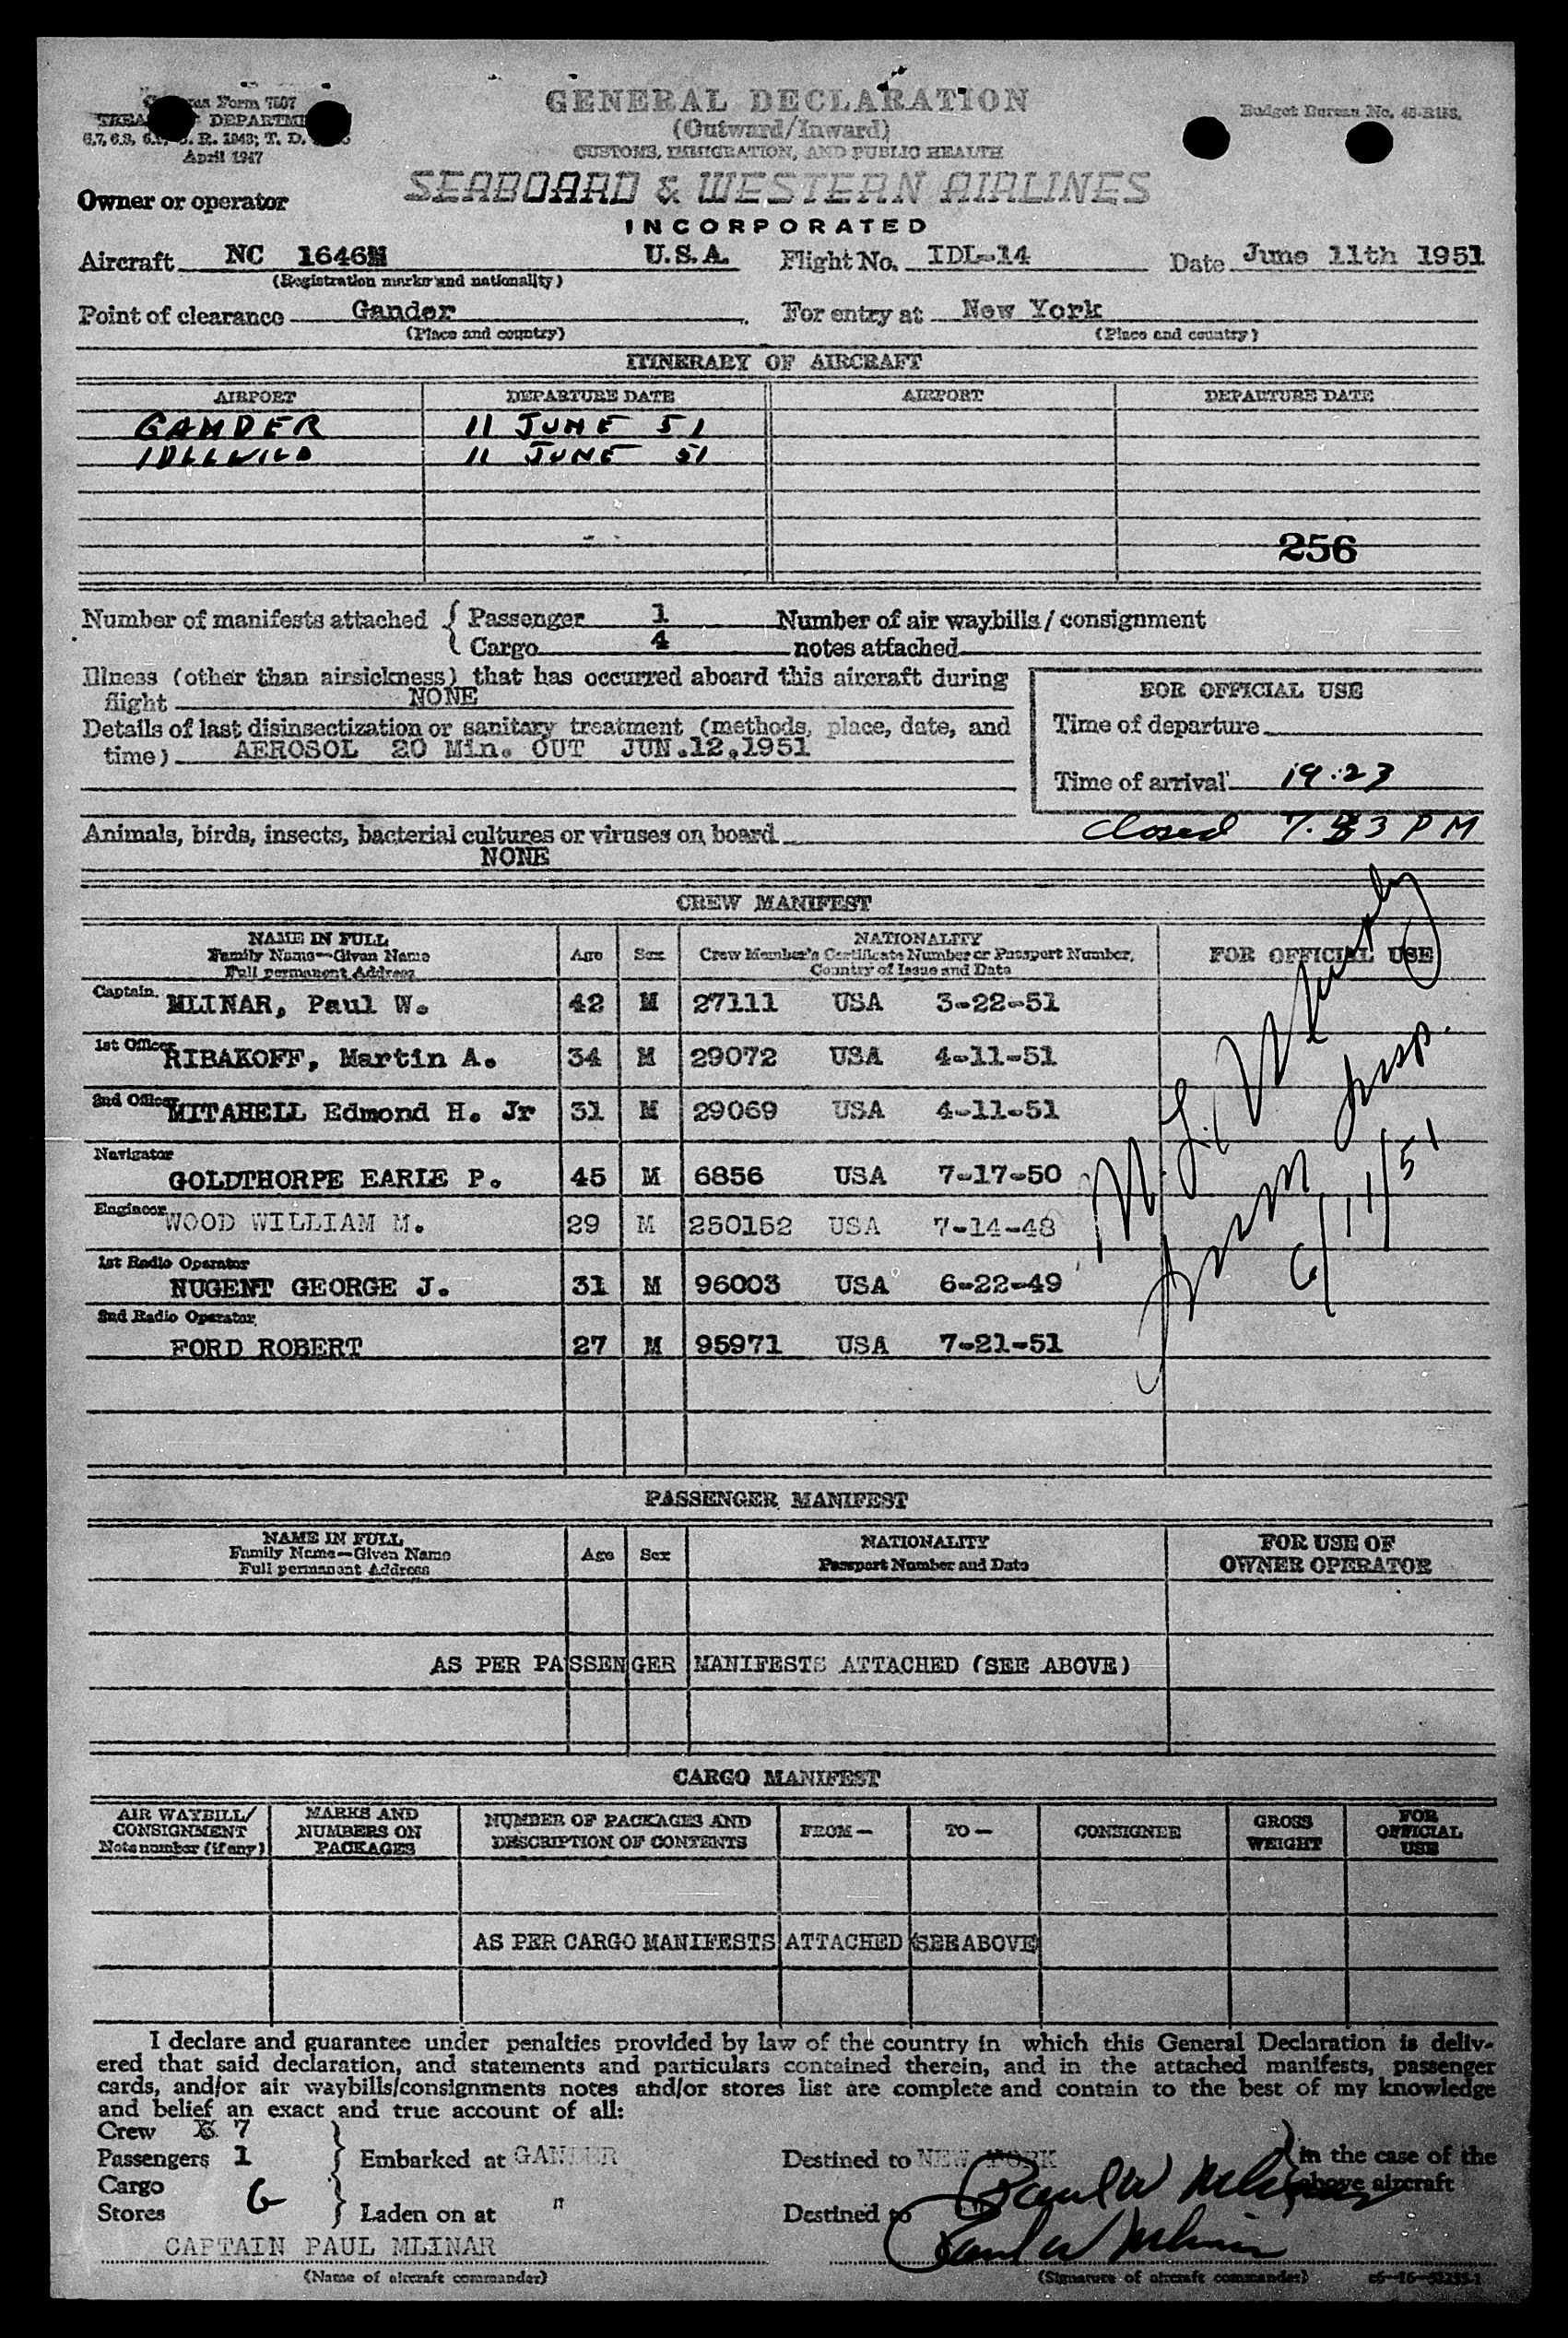 Customs Form 7507
TREASURY DEPARTMENT
6.7, 6.8, C. R. 1943; T. D.
April 1947
GENERAL DECLARATION
(Outward/Inward)
CUSTOMS, IMMIGRATION, AND PUBLIC HEALTH
Budget Bureau No.
Owner or operator
SEABOARD & WESTERN AIRLINES
INCORPORATED
Aircraft NC 1646M U.S.A. Flight No. IDL-14 Date June 11th 1951
(Registration marks and nationality)
Point of clearance Gander For entry at New York
(Place and country) (Place and country)
ITINERARY OF AIRCRAFT
AIRPORT DEPARTURE DATE AIRPORT DEPARTURE DATE
GANDER 11 JUNE 51
IDLEWILD 11 JUNE 51
256
Number of manifests attached { Passenger 1 Number of air waybills / consignment
Cargo 4 notes attached
Illness (other than airsickness) that has occurred aboard this aircraft during
flight NONE
Details of last disinsectization or sanitary treatment (methods, place, date, and
time) AEROSOL 20 Min. OUT JUN.12,1951
FOR OFFICIAL USE
Time of departure
Time of arrival 19:23
Closed 7.33 PM
Animals, birds, insects, bacterial cultures or viruses on board
NONE
CREW MANIFEST
NAME IN FULL
Family Name—Given Name
Full permanent Address
Age Sex
NATIONALITY
Crew Member's Certificate Number or Passport Number,
Country of Issue and Date
FOR OFFICIAL USE
Captain. MLINAR, Paul W. 42 M 27111 USA 3-22-51
1st Officer RIBAKOFF, Martin A. 34 M 29072 USA 4-11-51
2nd Officer MITAHELL Edmond H. Jr 31 M 29069 USA 4-11-51
Navigator
GOLDTHORPE EARLE P. 45 M 6856 USA 7-17-50
Engineer WOOD WILLIAM M. 29 M 250152 USA 7-14-48
1st Radio Operator
NUGENT GEORGE J. 31 M 96003 USA 6-22-49
2nd Radio Operator
FORD ROBERT 27 M 95971 USA 7-21-51
Imm Insp.
6/11/51
PASSENGER MANIFEST
NAME IN FULL
Family Name—Given Name
Full permanent Address
Age Sex
NATIONALITY
Passport Number and Date
FOR USE OF
OWNER OPERATOR
AS PER PASSENGER MANIFESTS ATTACHED (SEE ABOVE)
CARGO MANIFEST
AIR WAYBILL/
CONSIGNMENT
Note number (if any)
MARKS AND
NUMBERS ON
PACKAGES
NUMBER OF PACKAGES AND
DESCRIPTION OF CONTENTS
FROM — TO — CONSIGNEE
GROSS
WEIGHT
FOR
OFFICIAL
USE
AS PER CARGO MANIFESTS ATTACHED (SEE ABOVE)
I declare and guarantee under penalties provided by law of the country in which this General Declaration is deliv-
ered that said declaration, and statements and particulars contained therein, and in the attached manifests, passenger
cards, and/or air waybills/consignments notes and/or stores list are complete and contain to the best of my knowledge
and belief an exact and true account of all:
Crew 7
Passengers 1 } Embarked at GANDER Destined to NEW YORK in the case of the
Cargo above aircraft
Paul W Mlinar
Stores G } Laden on at " Destined to
CAPTAIN PAUL MLINAR Paul W Mlinar
(Name of aircraft commander) (Signature of aircraft commander)